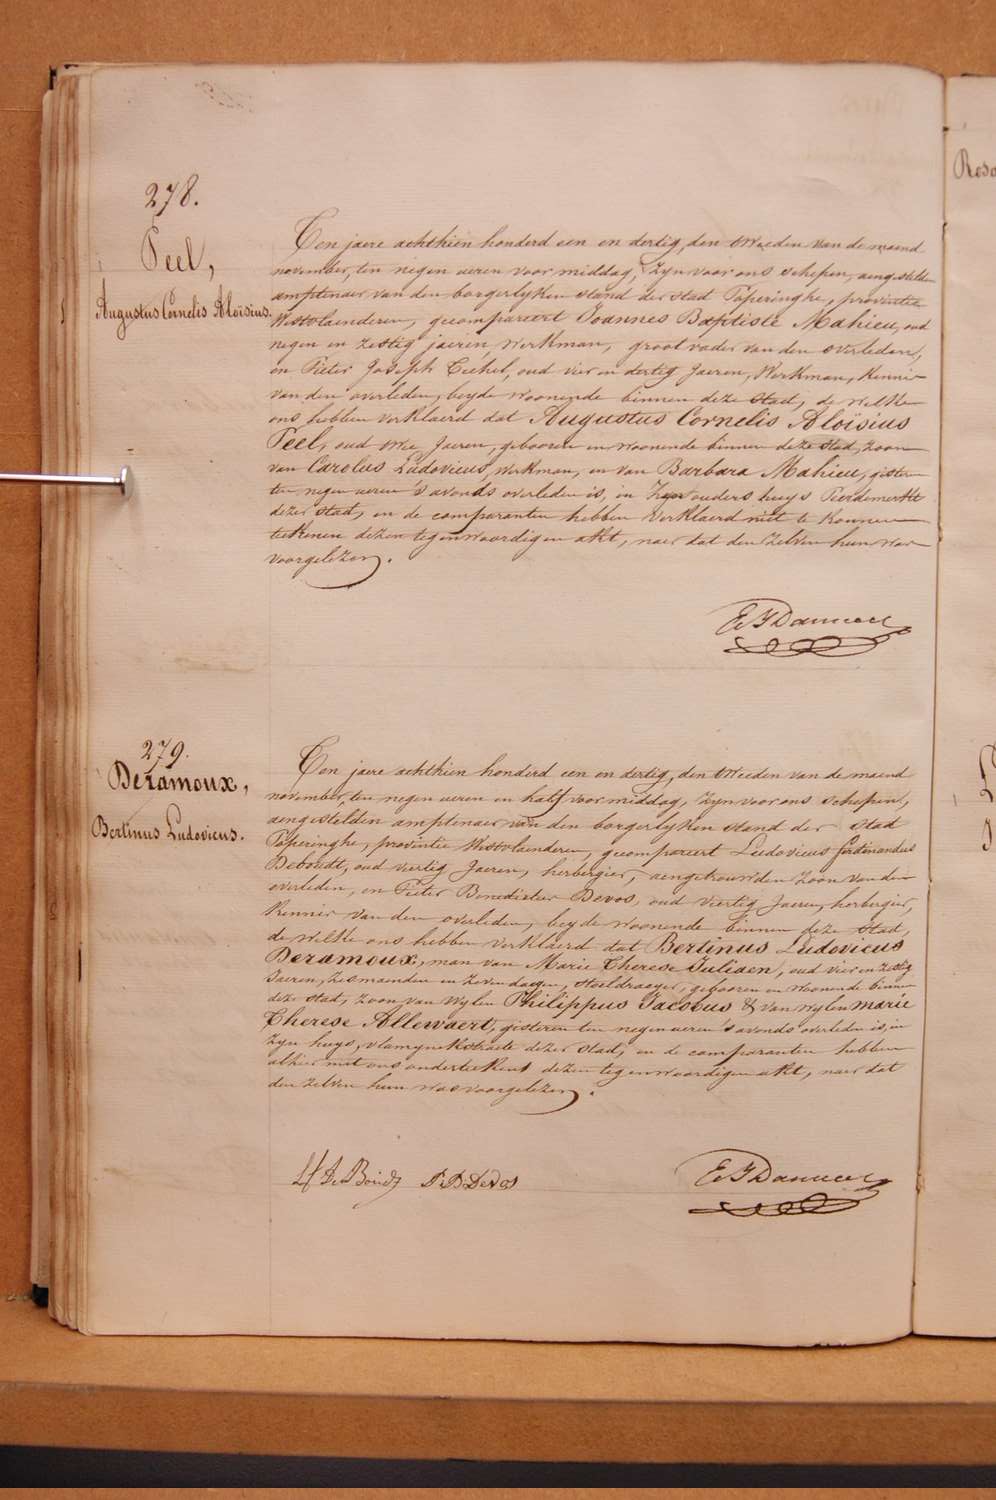 278.
Peel,
Augustus Cornelis Aloïsius.
Ten jaere achthien honderd een en dertig, den tweeden van de maend
november, ten negen ueren voor middag, zyn voor ons schepen, aengestelden
amptenaer van den borgerlyken stand der stad Poperinghe, provintie
Westvlaenderen, gecompareert Joannes Baptiste Mahieu, oud
negen en zestig jaeren, werkman, groot vader van den overleden,
en Pieter Joseph oud vier en dertig Jaeren, Werkman, Kennis
van den overleden, beyde woonende binnen deze stad, de welke
ons hebben verklaerd dat Augustus Cornelis Aloïsius
Peel, oud twee Jaeren, gebooren en woonende binnen deze stad, zoon
van Carolus Ludovicus, werkman, en van Barbara Mahieu, gisteren
ten negen ueren 's avonds overleden is, in zyn ouders huys Peerdemerkt
dezer stad, en de comparanten hebben verklaerd niet te konnen
teekenen dezen tegenwoordigen akt, naer dat den zelven hun was
voorgelezen.
279.
Deramoux,
Bertinus Ludovicus.
Ten jaere achthien honderd een en dertig, den tweeden van de maend
november, ten negen ueren en half voor middag, zyn voor ons schepen,
aengestelden amptenaer van den borgerlyken stand der stad
Poperinghe, provintie Westvlaenderen, gecompareert Ludovicus ferdinandus
Deboudt, oud veertig Jaeren, herbergier, aengetrouwden zoon van den
overleden, en Pieter Benedictus Devos, oud veertig Jaeren, herbergier,
Kennis van den overleden, beyde woonende binnen deze stad,
de welke ons hebben verklaerd dat Bertinus Ludovicus
Deramoux, man van Marie Therese Juliaen, oud vier en zestig
Jaeren, zes maenden en zeven daegen, stoeldraeyer, gebooren en woonende binnen
deze stad, zoon van wylen Philippus Jacobus & van wylen marie
Therese Allewaert, gisteren ten negen ueren 's avonds overleden is, in
zyn huys, vlamynckstraete dezer stad, en de comparanten hebben
alhier met ons onderteekent dezen tegenwoordigen akt, naer dat
den zelven hun was voorgelezen.
P. B. DeVos